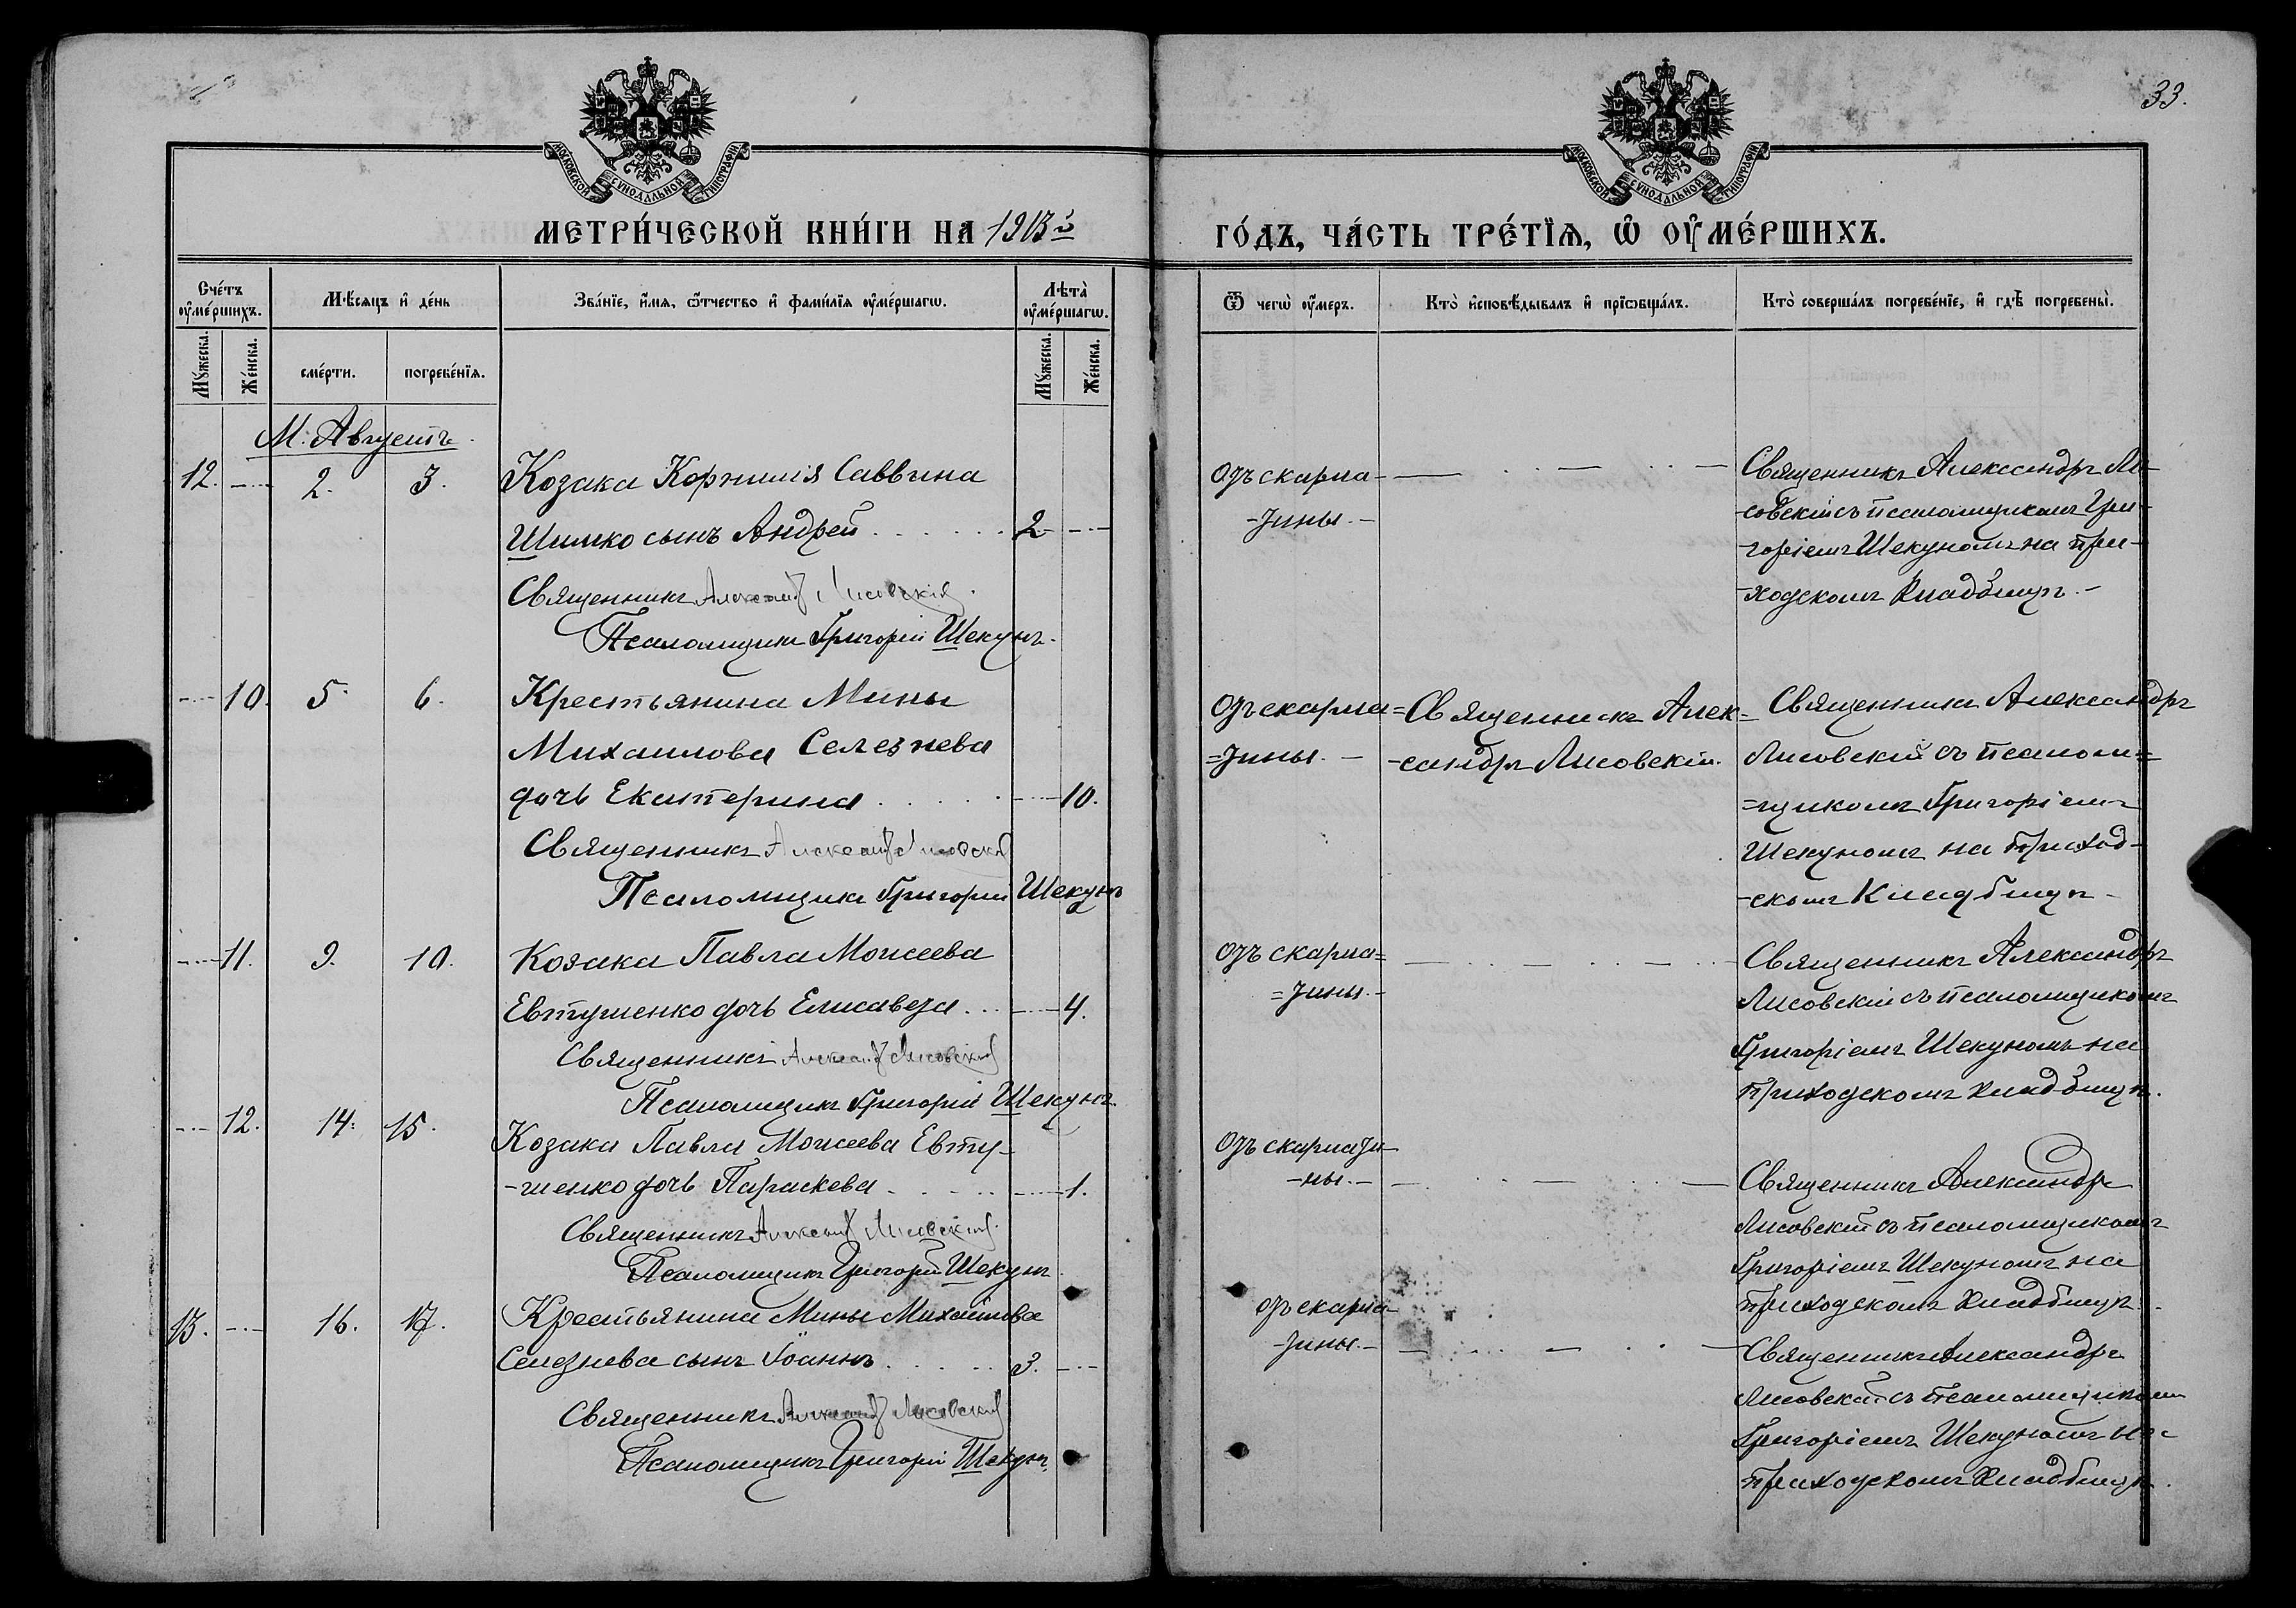 33.
МОСКОВСКОЙ СѴНОДАЛЬНОЙ ТИПОГРАФІИ
МОСКОВСКОЙ СѴНОДАЛЬНОЙ ТИПОГРАФІИ
МЕТРИ́ЧЕСКОЙ КНИ́ГИ НА 1913й
ГО́ДЪ, ЧА́СТЬ ТРЕ́ТЇѦ, Ѡ҆ ОУ҆МЕ́РШИХЪ.
Счéтъ оу҆мéршихъ.
Мѣ́сяцъ и҆ дéнь
Звáнїе, и҆́мя, ѿтчество и҆ фамѝлїя оу҆мéршагѡ.
Лѣ́та оу҆мéршагѡ.
Ѿ чегѡ̀ оу҆́меръ.
Кто̀ и҆сповѣ́дывалъ и҆ прїѡбщáлъ.
Кто̀ совершáлъ погребéнїе, и҆ гдѣ̀ погребены̀.
Мꙋ́жеска.
Жéнска.
смéрти.
погребéнїя.
Мꙋ́жеска.
Жéнска.
М. Августъ.
12. 2. 3. Козака Корнилія Саввина
Шимко сынъ Андрей 2
Священникъ Александръ Лисовскій.
Псаломщикъ Григорій Шекунъ.
Отъ скарла-
-тины.
Священникъ Александръ Ли-
-совскій съ псаломщикомъ Гри-
-горіемъ Шекуномъ на при-
-ходскомъ кладбищѣ.
10. 5. 6. Крестьянина Мины
Михаилова Селезнева
дочь Екатерина 10.
Священникъ Александръ Лисовскій
Псаломщикъ Григорій Шекунъ
Отъ скарла=
=тины.
Священникъ Алек=
-сандръ Лисовскій.
Священникъ Александръ
Лисовскій съ псалом=
=щикомъ Григоріемъ
Шекуномъ на приход-
-скомъ кладбищѣ
11. 9. 10. Козака Павла Моисеева
Евтушенко дочь Елисавета 4.
Священникъ Александръ Лисовскій
Псаломщикъ Григорій Шекунъ
Отъ скарла=
=тины.
Священникъ Александръ
Лисовскій съ псаломщикомъ
Григоріемъ Шекуномъ на
приходскомъ кладбищѣ.
12. 14. 15. Козака Павла Моисеева Евту-
-шенко дочь Параскева 1.
Священникъ Александръ Лисовскій.
Псаломщикъ Григорій Шекунъ
Отъ скарлати-
-ны.
Священникъ Александръ
Лисовскій съ псаломщикомъ
Григоріемъ Шекуномъ на
приходскомъ кладбищѣ.
13. 16. 17. Крестьянина Мины Михаилова
Селезнева сынъ Іоаннъ 3.
Священникъ Александръ Лисовскій
Псаломщикъ Григорій Шекунъ.
Отъ скарла-
-тины.
Священникъ Александръ
Лисовскій съ псаломщикомъ
Григоріемъ Шекуномъ на
приходскомъ кладбищѣ.